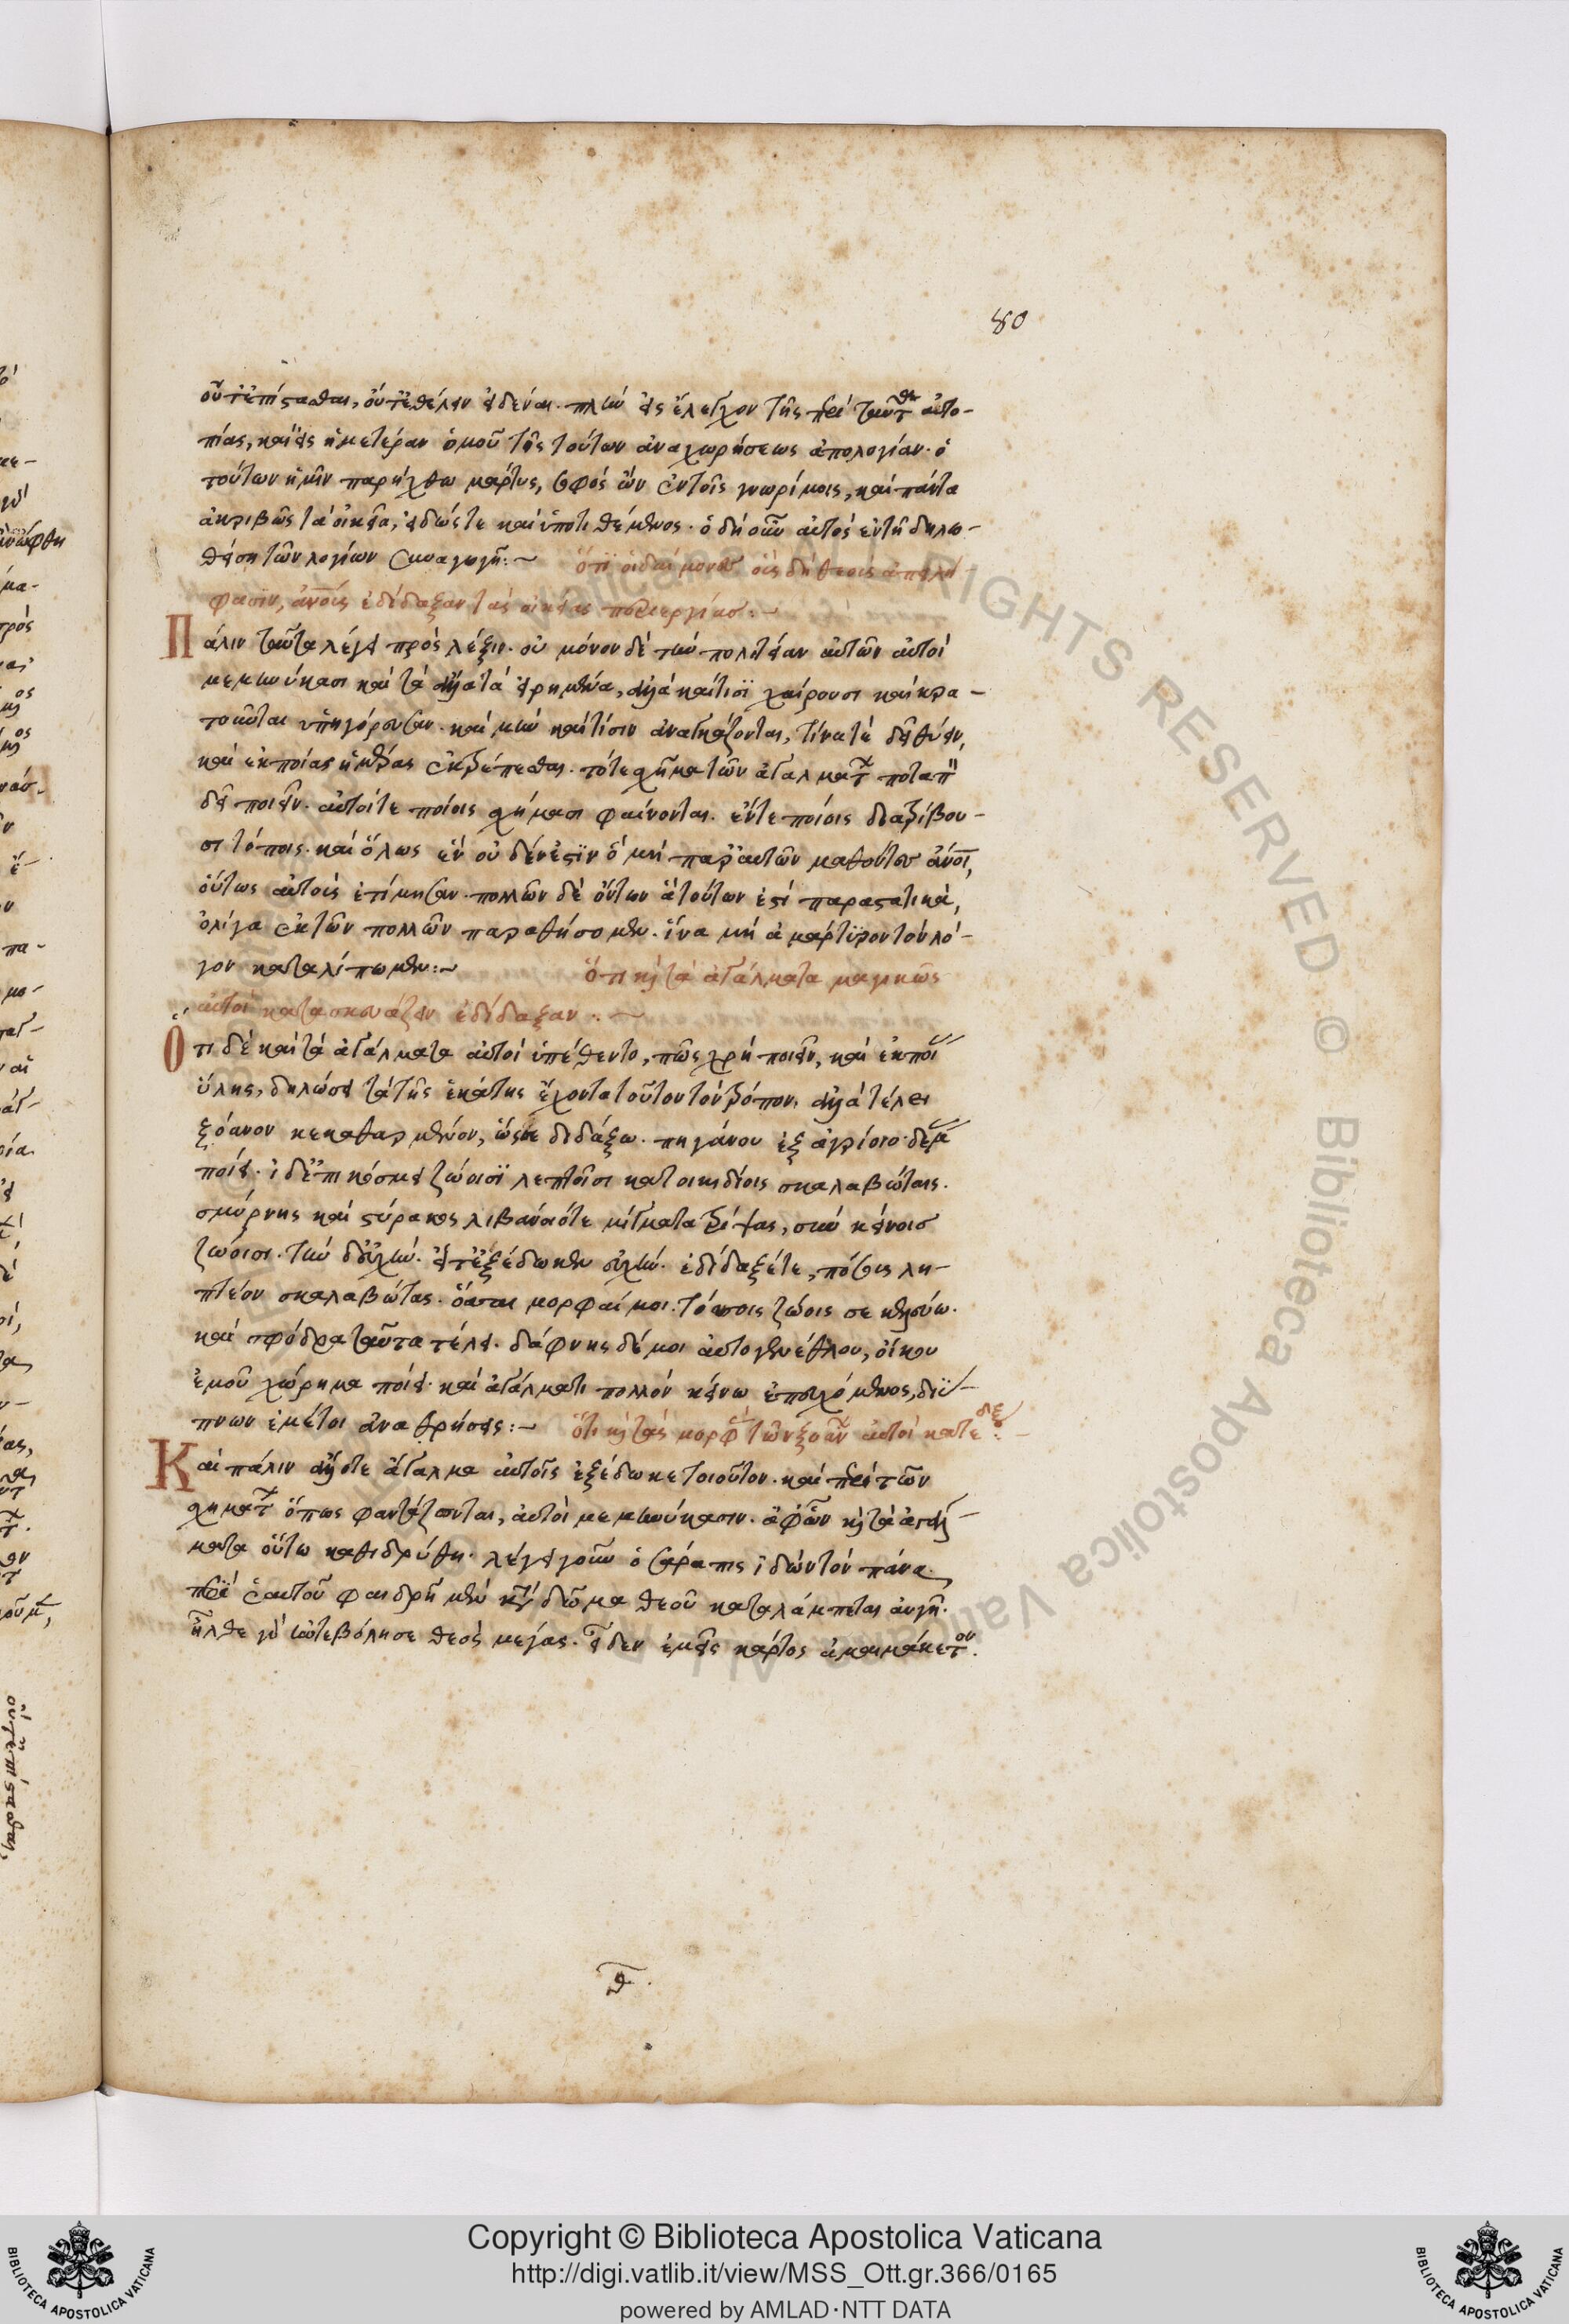 80
οὔτ' ἐπίστασθαι, οὔτ' ἐθέλειν εἰδέναι. πλὴν εἰς ἔλεγχον τῆς περὶ ταῦτ αὐτο-
πίας, καὶ εἰς ἡμετέραν ὁμοῦ τῆς τούτων ἀναχωρήσεως ἀπολογίαν. ὁ
τούτων ἡμῖν παρήχθω μάρτυς, σοφὸς ὢν ἐν τοῖς γνωρίμοις, καὶ πάντα
ἀκριβῶς τὰ οἰκεῖα, εἰδώς τε καὶ ὑποτιθέμενος. ὁ δὴ οὖν αὐτὸς ἐν τῇ δηλω-
θείσῃ τῶν λογίων συναγωγῇ:~ ὅτι οἱ δαίμονες οἷς δὴ θεοῖς
φασιν, ἀνοις ἐδίδαξαν τὰς οἰκείας περιεργίας:~
Πάλιν ταῦτα λέγει πρὸς λέξιν. οὐ μόνον δὲ τὴν πολιτείαν αὐτῶν αὐτοὶ
μεμηνύκασι καὶ τὰ ἄλλα τὰ εἰρημένα, ἀλλὰ καὶ τίσι χαίρουσι καὶ κρα-
τοῦνται ὑπηγόρευσαν. καὶ μὴν καὶ τίσιν ἀναγκάζονται, τίνα τὲ δεῖ θύειν,
καὶ ἐκ ποίας ἡμέρας ἐκτρέπεσθαι. τό τε σχῆμα τῶν ἀγαλμάτ ποταπ
δεῖ ποιεῖν. αὐτοί τε ποίοις σχήμασι φαίνονται. ἔν τε ποίοις διατρίβου-
σι τόποις. καὶ ὅλως ἓν οὐδέν ἐστιν ὃ μὴ παρ' αὐτῶν μαθόντες ἄνοι,
οὕτως αὐτοὺς ἐτίμησαν. πολλῶν δὲ ὄντων ἃ τούτων ἐστὶ παραστατικά,
ὀλίγα ἐκ τῶν πολλῶν παραθήσομεν. ἵνα μὴ ἀμάρτυρον τὸν λό-
γον καταλίπωμεν:~ ὅτι καὶ τὰ ἀγάλματα μαγικῶς
αὐτοὶ κατασκευάζειν ἐδίδαξαν:~
Ὅτι δὲ καὶ τὰ ἀγάλματα αὐτοὶ ὑπέθεντο, πῶς χρὴ ποιεῖν, καὶ ἐκ ποί
ὕλης, δηλώσει τὰ τῆς ἑκάτης ἔχοντα τοῦτον τὸν τρόπον. ἀλλὰ τέλει
ξόανον κεκαθαρμένον, ὥς σε διδάξω. πηγάνου ἐξ ἀγρίοιο δέμ
ποίει. ἰ δ' ἐπικόσμει ζώοισι λεπτοῖσι κατοικιδίοις σκαλαβώταις.
σμύρνης καὶ στύρακος λιβάνοιό τε μίγματα τρίψας, σὺν κείνοις
ζώοισι. τὴν δ' εὐχήν. εἶτ' ἐξέδωκεν εὐχήν. ἐδίδαξέ τε, πόσους λη-
πτέον σκαλαβώτας. ὅσσαι μορφαί μοι. τόσσοις ζώοις σε κελεύω.
καὶ σφόδρα ταῦτα τέλει. δάφνης δέ μοι αὐτογενέθλου, οἴκου
ἐμοῦ χώρημα ποίει. καὶ ἀγάλματι πολλὸν κείνω ἐπευχόμενος, δι' ὕ-
πνων ἐμέ τοι ἀναθρήσεις:~ ὅτι καὶ τὰς μορφ τῶν ξοάν αὐτοὶ κατέδειξ:~
Καὶ πάλιν ἄλλοτε ἄγαλμα αὐτοῖς ἐξέδωκε τοιοῦτον. καὶ περὶ τῶν
σχημάτ ὅπως φαντάζονται, αὐτοὶ μεμηνύκασιν. ἀφ' ὧν καὶ τὰ ἀγάλ-
ματα οὕτω καθιδρύθη. λέγει γοῦν ὁ σάραπις ἰδὼν τὸν πάνα
περὶ ἑαυτοῦ φαιδρὴ μὲν κατὰ δῶμα θεοῦ καταλάμπεται αὐγή.
ἦλθε γὰρ ἠντεβόλησε θεὸς μέγας. εἶδεν ἐμεῖς κάρτος ἀμαιμάκετον.
θ.
Copyright © Biblioteca Apostolica Vaticana
http://digi.vatlib.it/view/MSS_Ott.gr.366/0165
powered by AMLAD·NTT DATA